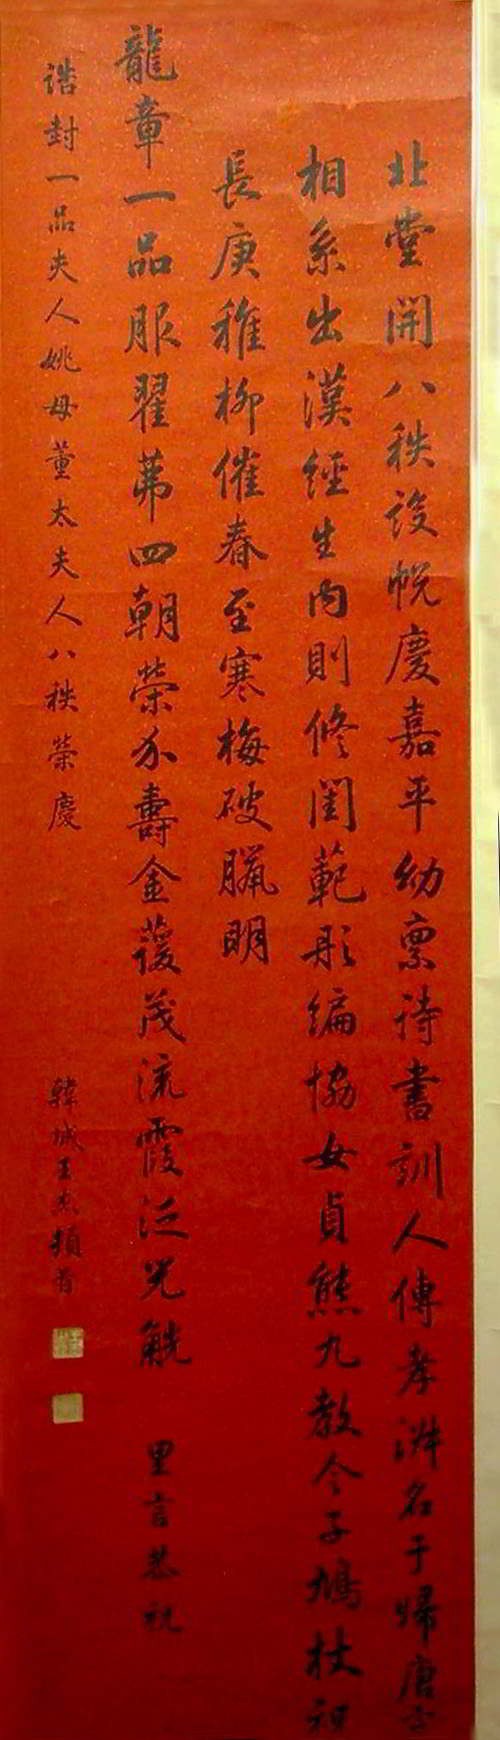 北堂開八秩設帨慶嘉平幼禀詩書訓人傳孝淑名于歸唐宰
相系出漢經生內則修閨範彤編協女貞熊丸教令子鳩杖祝
長庚稚柳催春至寒梅破臘明
龍章一品服翟茀四朝榮介壽金蘐茂流霞泛兕觥 里言恭祝
誥封一品夫人姚母董太夫人八秩榮慶
韓城王杰頓首